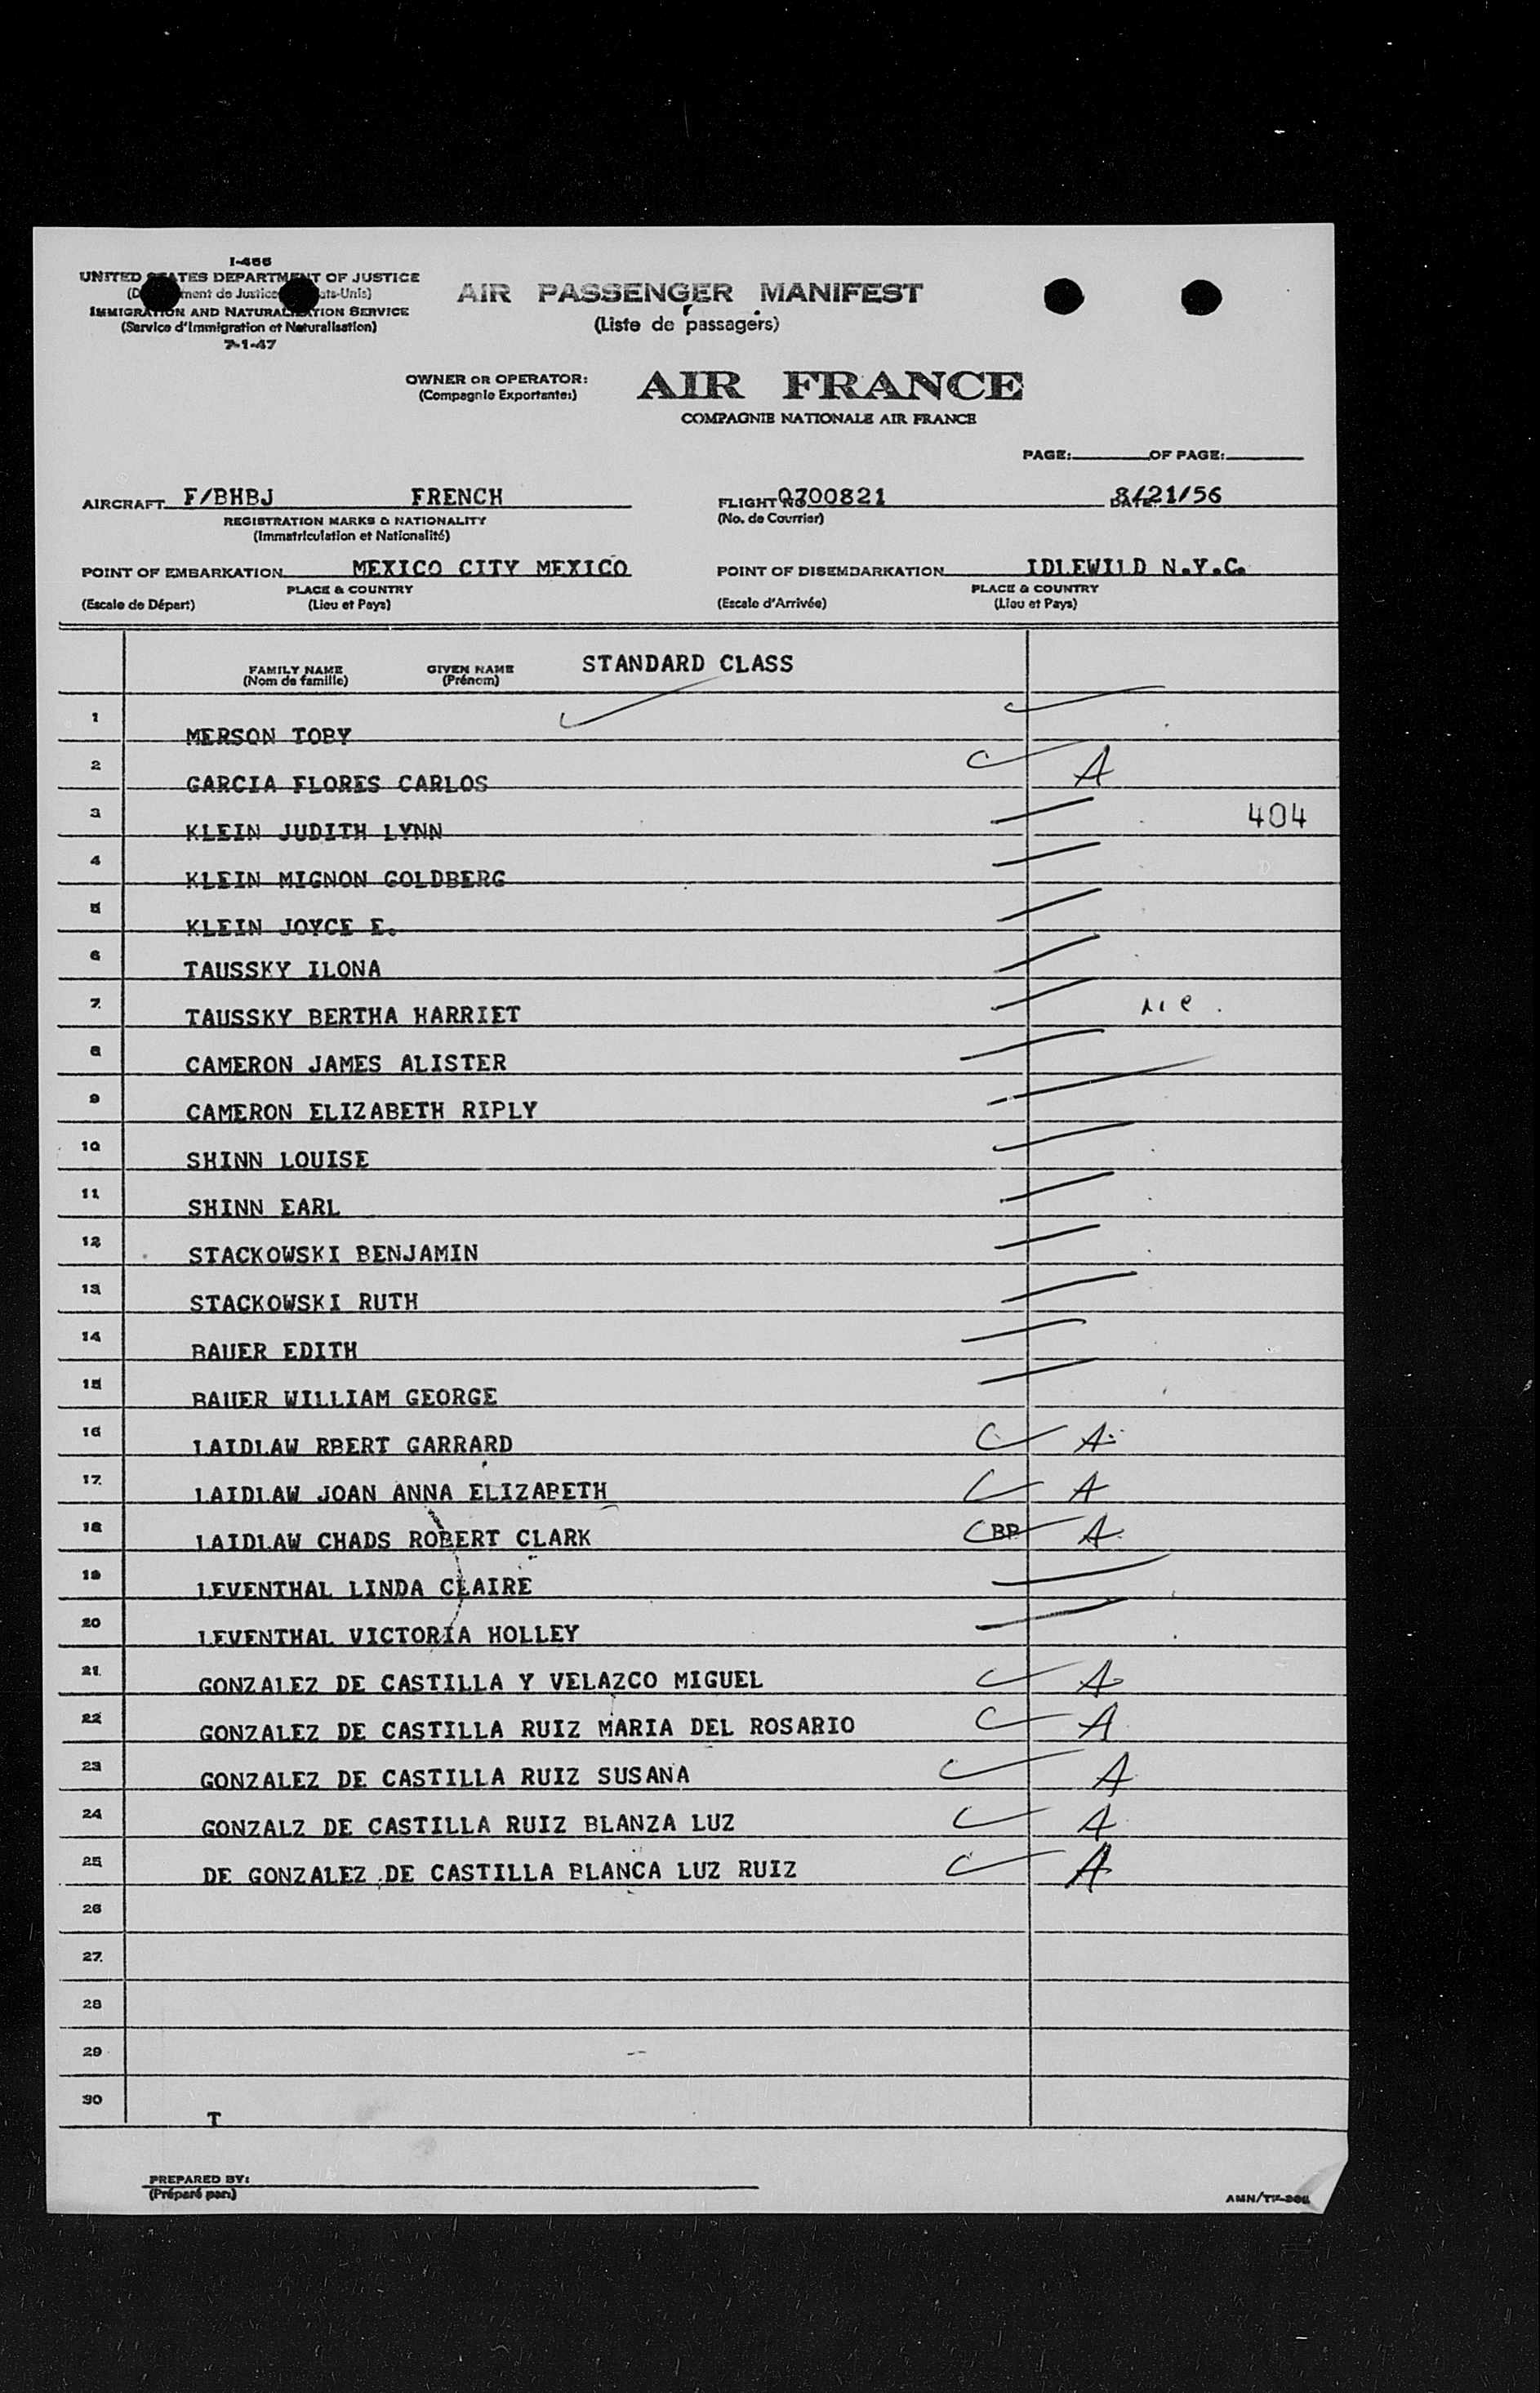 I-466
UNITED STATES DEPARTMENT OF JUSTICE
ment de Justice
IMMIGRATION AND NATURALIZATION SERVICE
(Service d'Immigration et Naturalisation)
7-1-47
AIR PASSENGER MANIFEST
(Liste de passagers)
OWNER OR OPERATOR:
(Compagnie Exportante:)
AIR FRANCE
COMPAGNIE NATIONALE AIR FRANCE
PAGE: OF PAGE:
AIRCRAFT F/BHBJ FRENCH
REGISTRATION MARKS & NATIONALITY
(Immatriculation et Nationalité)
FLIGHT NO 0700821 DATE: 8/21/56
(No. de Courrier)
POINT OF EMBARKATION MEXICO CITY MEXICO
PLACE & COUNTRY
(Escale de Départ) (Lieu et Pays)
POINT OF DISEMBARKATION IDLEWILD N.Y.C.
PLACE & COUNTRY
(Escale d'Arrivée) (Lieu et Pays)
FAMILY NAME GIVEN NAME STANDARD CLASS
(Nom de famille) (Prénom)
1 MERSON TOBY
2 GARCIA FLORES CARLOS A
3 KLEIN JUDITH LYNN 404
4 KLEIN MIGNON GOLDBERG
5 KLEIN JOYCE E.
6 TAUSSKY ILONA
7 TAUSSKY BERTHA HARRIET
8 CAMERON JAMES ALISTER
9 CAMERON ELIZABETH RIPLY
10 SHINN LOUISE
11 SHINN EARL
12 STACKOWSKI BENJAMIN
13 STACKOWSKI RUTH
14 BAUER EDITH
15 BAUER WILLIAM GEORGE
16 LAIDLAW RBERT GARRARD A
17 LAIDLAW JOAN ANNA ELIZABETH A
18 LAIDLAW CHADS ROBERT CLARK BP A
19 LEVENTHAL LINDA CLAIRE
20 LEVENTHAL VICTORIA HOLLEY
21 GONZALEZ DE CASTILLA Y VELAZCO MIGUEL A
22 GONZALEZ DE CASTILLA RUIZ MARIA DEL ROSARIO A
23 GONZALEZ DE CASTILLA RUIZ SUSANA A
24 GONZALZ DE CASTILLA RUIZ BLANZA LUZ A
25 DE GONZALEZ DE CASTILLA BLANCA LUZ RUIZ A
26
27
28
29
30 T
PREPARED BY:
(Préparé par:)